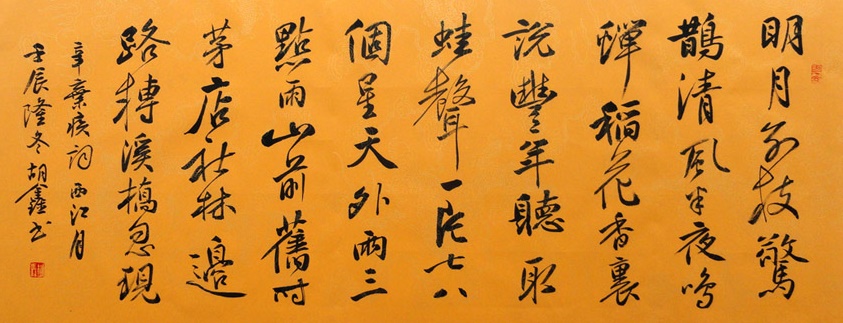 明月别枝驚
鵲清風半夜鳴
蟬稻花香裏
説豐年聽取
蛙聲一片七八
個星天外兩三
點雨山前舊时
茅店社林邊
路轉溪橋忽現
辛棄疾詞西江月
壬辰隆冬胡鑫书